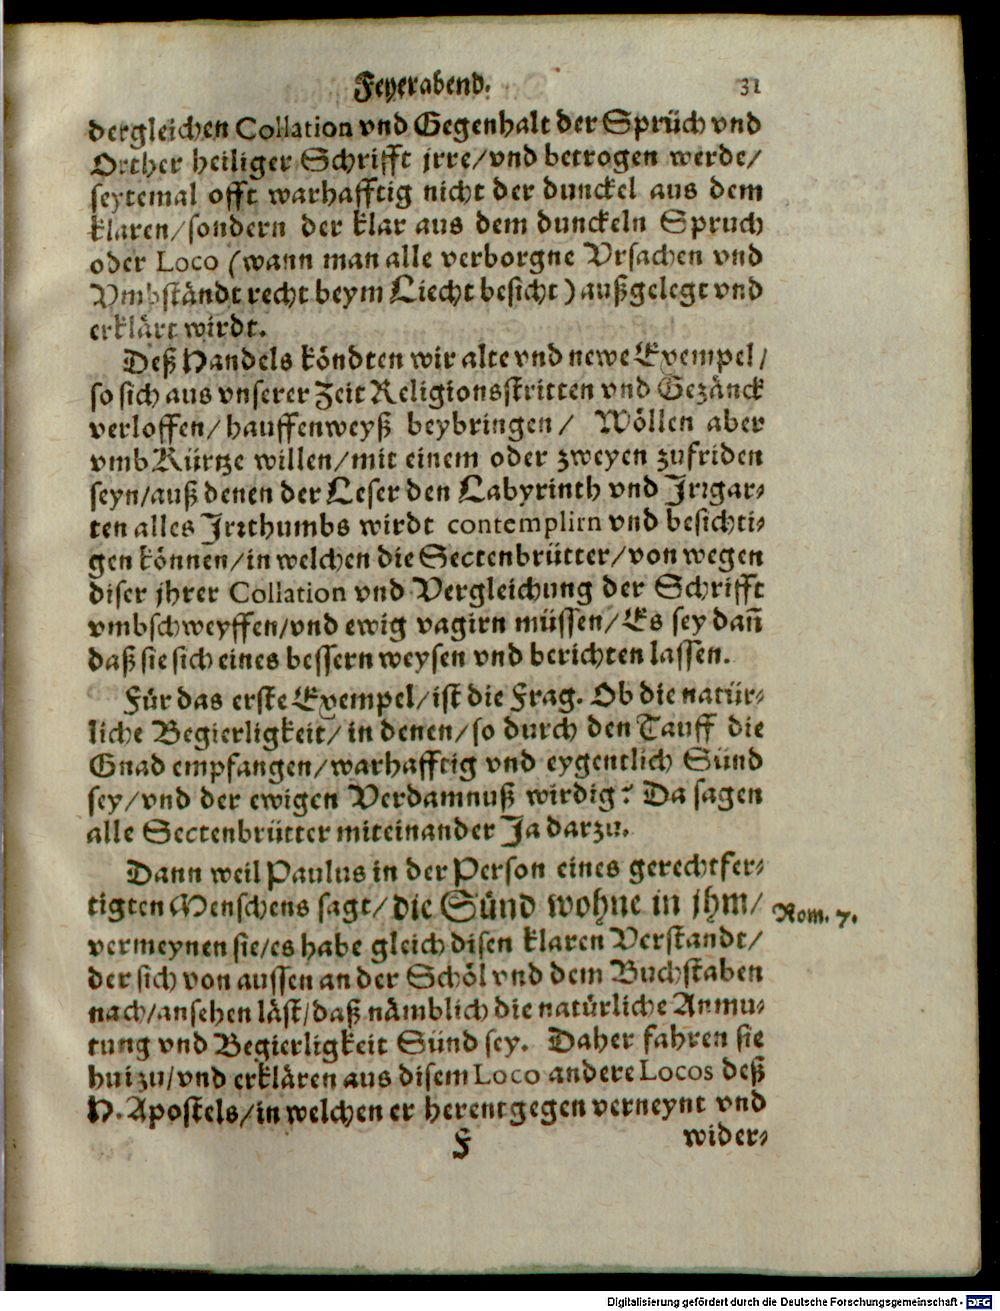 Feyerabend. 31
dergleichen Collation vnd Gegenhalt der Sprüch vnd
Orther heiliger Schrifft jrre/vnd betrogen werde/
seytemal offt warhafftig nicht der dunckel aus dem
klaren/sondern der klar aus dem dunckeln Spruch
oder Loco (wann man alle verborgne Vrsachen vnd
Vmbständt recht beym Liecht besicht) außgelegt vnd
erklärt wirdt.
Deß Handels köndten wir alte vnd newe Exempel/
so sich aus vnserer Zeit Religionsstritten vnd Gezänck
verloffen/hauffenweyß beybringen/ Wöllen aber
vmb Kürtze willen/mit einem oder zweyen zufriden
seyn/auß denen der Leser den Labyrinth vnd Jrrgar-
ten alles Jrrthumbs wirdt contemplirn vnd besichti-
gen können/in welchen die Sectenbrütter/von wegen
diser jhrer Collation vnd Vergleichung der Schrifft
vmbschweyffen/vnd ewig vagirn müssen/Es sey dañ
daß sie sich eines bessern weysen vnd berichten lassen.
Für das erste Exempel/ist die Frag. Ob die natür-
liche Begierligkeit/in denen/so durch den Tauff die
Gnad empfangen/warhafftig vnd eygentlich Sünd
sey/vnd der ewigen Verdamnuß wirdig? Da sagen
alle Sectenbrütter miteinander Ja darzu.
Dann weil Paulus in der Person eines gerechtfer-
tigten Menschens sagt/die Sünd wohne in jhm/ Rom. 7.
vermeynen sie/es habe gleich disen klaren Verstandt/
der sich von aussen an der Schöl vnd dem Buchstaben
nach/ansehen läst/daß nämblich die natürliche Anmu-
tung vnd Begierligkeit Sünd sey. Daher fahren sie
hui zu/vnd erklären aus disem Loco andere Locos deß
H. Apostels/in welchen er herentgegen verneynt vnd
F wider-
Digitalisierung gefördert durch die Deutsche Forschungsgemeinschaft - DFG